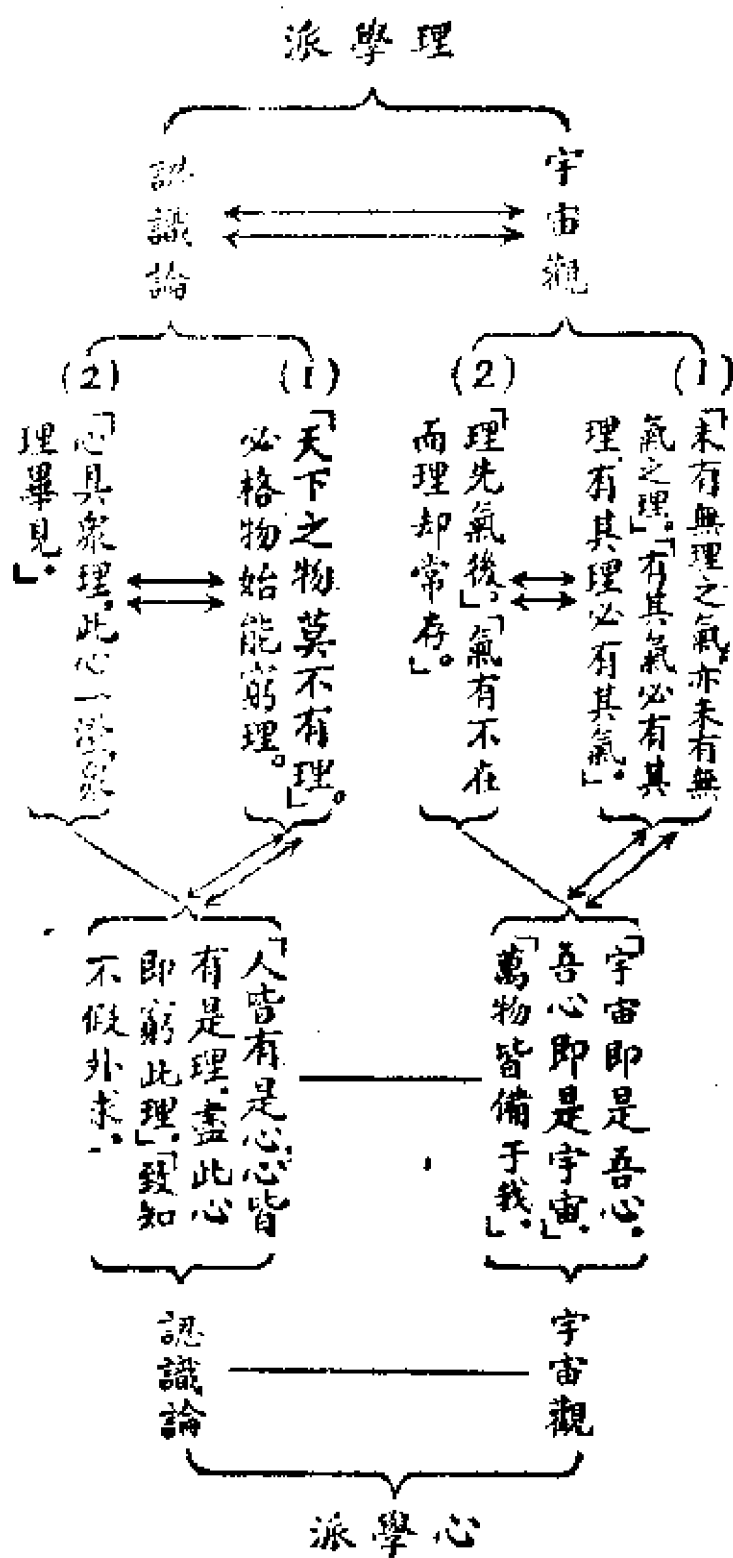 理學派
宇宙觀
認識論
(1)
「未有無理之氣,亦未有無
氣之理」。「有其氣必有其
理,有其理必有其氣」。
(2)
「理先氣後」,「氣有不在
而理却常存」。
(1)
「天下之物莫不有理」。
必格物始能窮理。
(2)
「心具衆理,此心一澄,衆
理畢見」。
「宇宙即是吾心.
吾心即是宇宙」.
「萬物皆備于我」.
「人皆有是心,心皆
有是理,盡此心
即窮此理」,「致知
不假外求.
宇宙觀
認識論
心學派